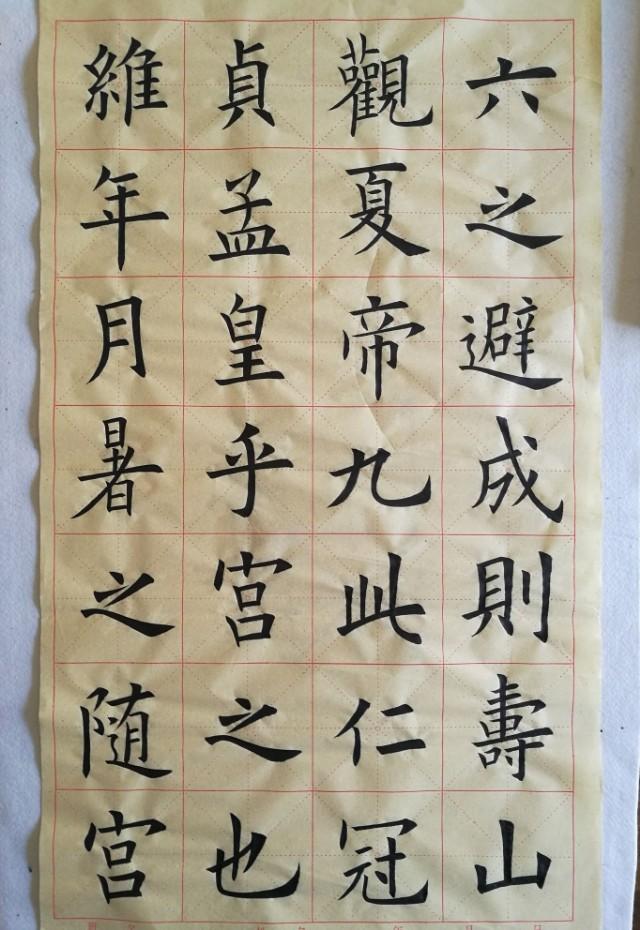 六之避成則壽山
觀夏帝九此仁冠
貞孟皇乎宮之也
維年月暑之随宫